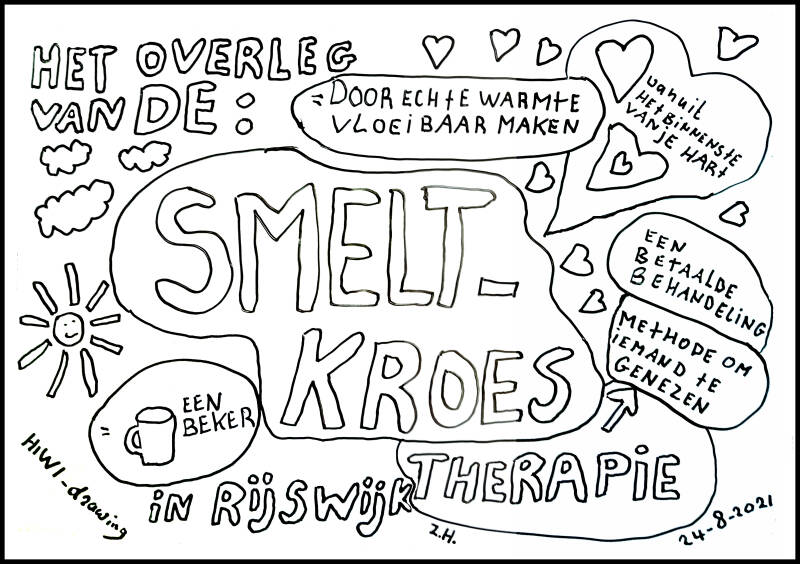 HET OVERLEG
VAN DE :
= DOOR ECHTE WARMTE
VLOEIBAAR MAKEN
vanuit
HET BINNENSTE
VAN JE HART
SMELT-
KROES
EEN
BETAALDE
BEHANDELING
METHODE OM
iEMAND TE
GENEZEN
= EEN
BEKER
THERAPiE
iN RijSWijK
Z.H.
HiWI-drawing
24-8-2021